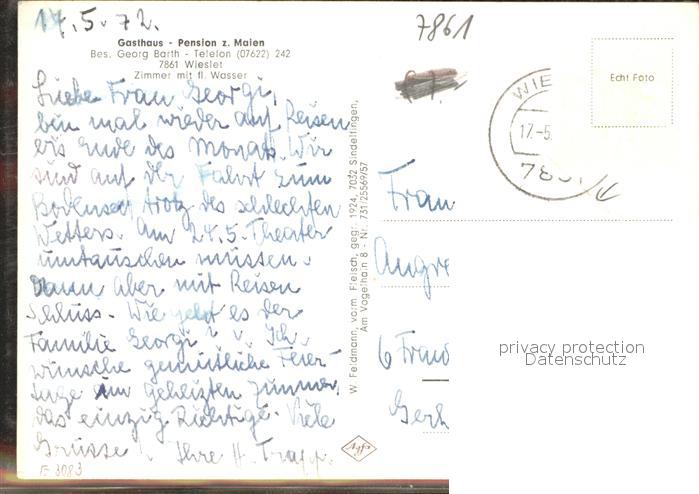 17.5.72.
7861
Gasthaus - Pension z. Maien
Bes. Georg Barth - Telefon (07622) 242
7861 Wieslet
Zimmer mit fl. Wasser
Liebe Frau Georgi,
bin mal wieder auf Reisen
bis Ende des Monats. Wir
sind auf der Fahrt zum
Bodensee, trotz des schlechten
Wetters. Am 24.5. Theater
umtauschen müssen.
Dann aber mit Reisen
Schluss. Wie geht es der
Familie Georgi? Ich
wünsche gemütliche Feier-
tage im geheizten Zimmer,
das einzig Richtige. Viele
Grüsse Ihre H. Trapp.
E 3083
W. Feldmann, vorm. Fleisch, geg: 1924, 7032 Sindelfingen,
Am Vogelhain 8 - Nr. 731/25569/57
Agfa
WIE
17.-5.
Echt Foto
Frau
6 Fran
Gerh
privacy protection
Datenschutz